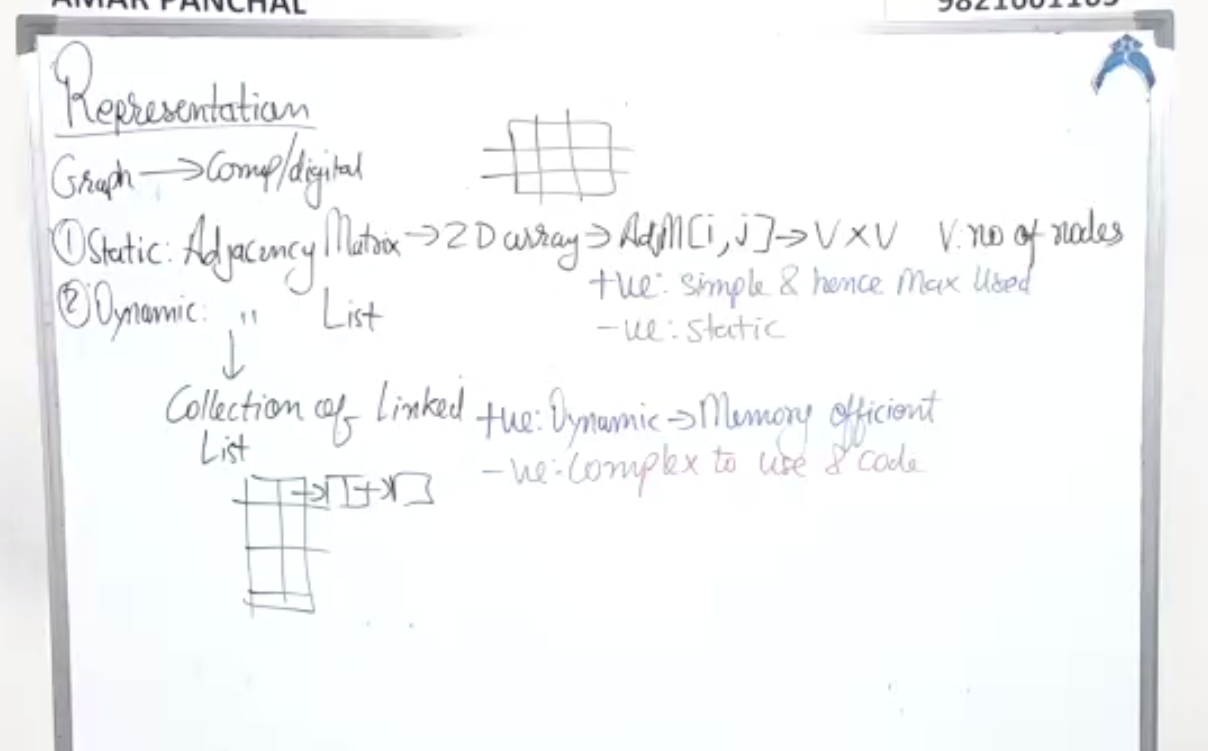 AMAR PANCHAL
9821601163
Representation
Graph → Comp/digital
① Static: Adjacency Matrix → 2D array → AdjM[i, j] → V×V V: no of nodes
+ve: simple & hence Max Used
② Dynamic: " List
-ve: static
↓
Collection of Linked
List
+ve: Dynamic → Memory efficient
-ve: Complex to use & code